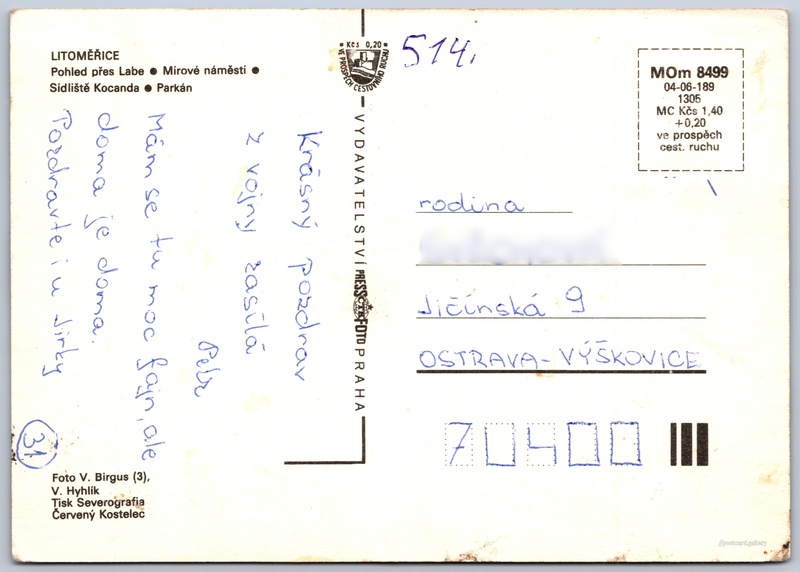 LITOMĚŘICE
Pohled přes Labe ● Mírové náměstí ●
Sídliště Kocanda ● Parkán
Krásný pozdrav
z vojny zasílá
Petr
Mám se tu moc fajn, ale
doma je doma.
Pozdravte i u Jirky
31
Foto V. Birgus (3),
V. Hyhlík
Tisk Severografia
Červený Kostelec
Kčs 0,20
VE PROSPĚCH CESTOVNÍHO RUCHU
VYDAVATELSTVÍ PRESSFOTO PRAHA
514.
MOm 8499
04-06-189
1305
MC Kčs 1,40
+0,20
ve prospěch
cest. ruchu
rodina
Jičínská 9
OSTRAVA-VÝŠKOVICE
70400